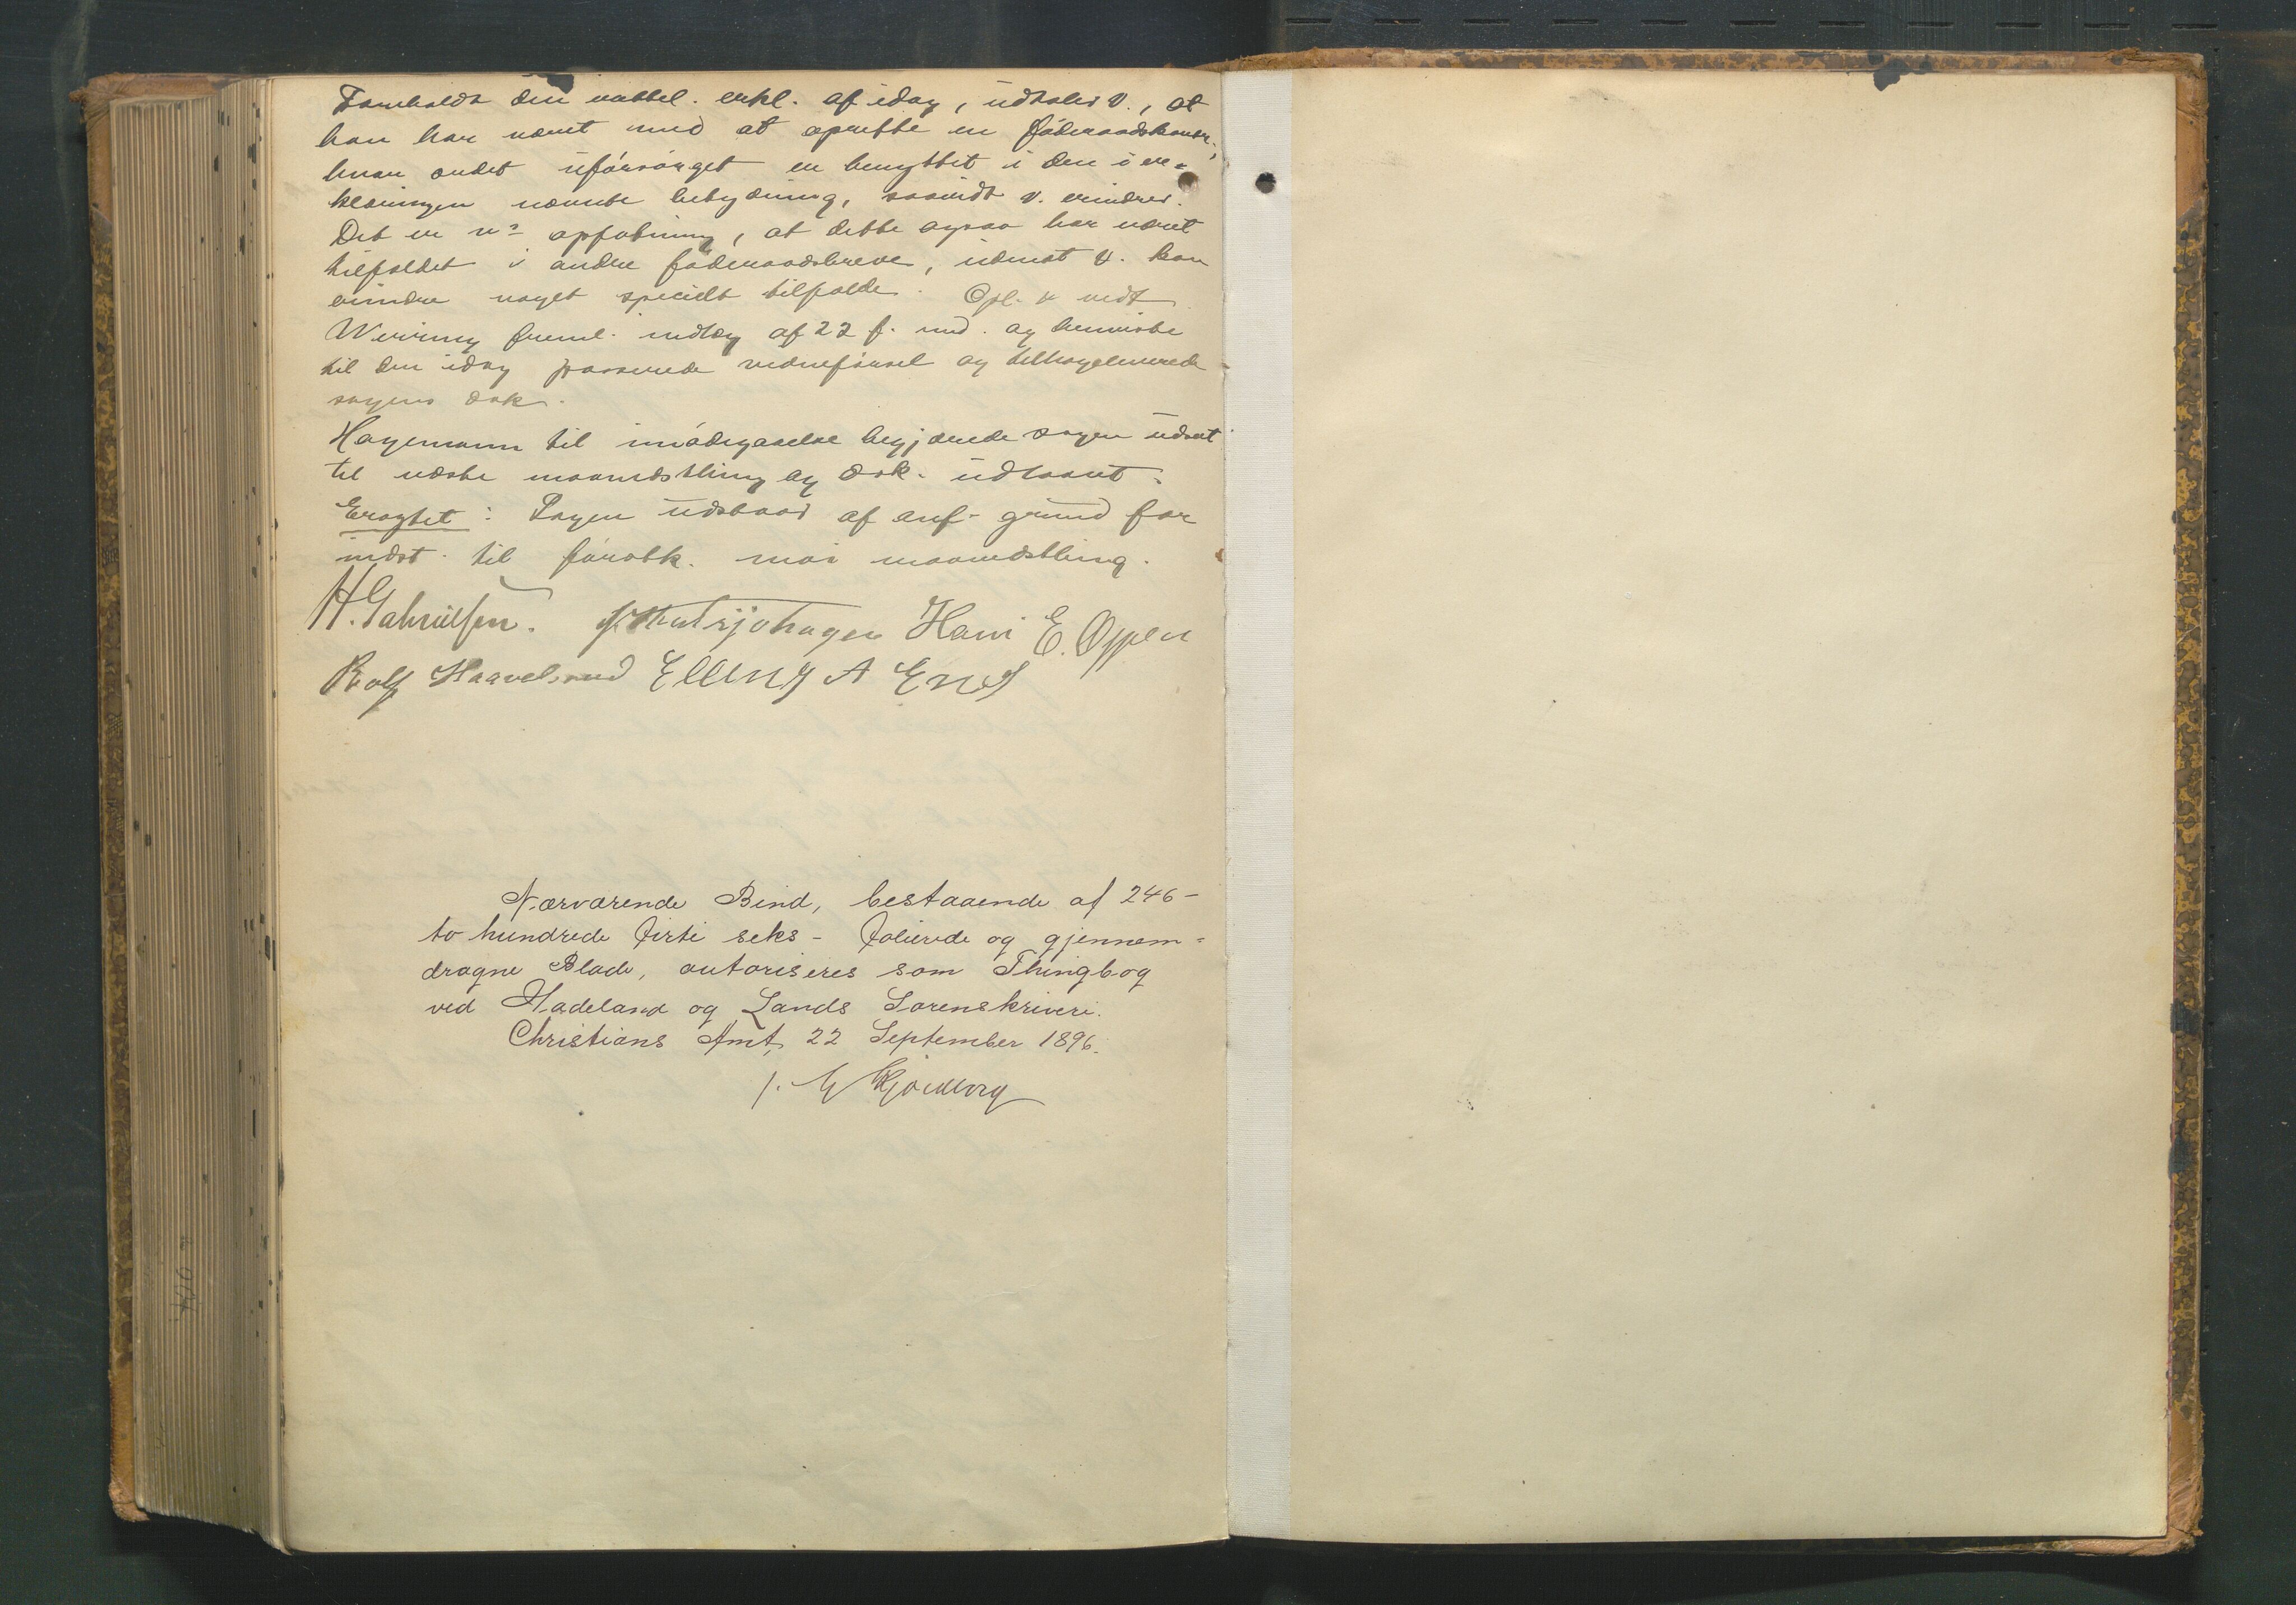 Foreholdt den vattel. erkl. af idag, udtaler V., at
han har været med at oprette en föderaadskontr.,
hvor ordet uforsörget er benyttet i den i er-
klæringen nævnte betydning, saavidt V. erindrer.
Det er v's opfatning, at dette ogsaa har været
tilfældet i andre föderaadsbreve, uden at V. kan
erindre noget specielt tilfælde. Opl. v vedt
Werring freml. indlæg af 22 f. md. og henviste
til den idag passerede vidneförsel og tilbageleverede
sagens dok.
Hagemann til imödegaaelse begjærede sagen udsat
til næste maanedsthing og dok. udlaant.
Eragtet: Sagen udstaar af anf. grund for
indst. til förstk. mai maanedsthing.
H. Gabrielsen. Hans E. Oppen
Rolf Haavelsrud Elling A
Nærværende Bind, bestaaende af 246-
to hundrede firti seks- folierede og gjennem-
dragne Blade, autoriseres som Thingbog
ved Hadeland og Lands Sorenskriveri.
Christians Amt, 22 September 1896.